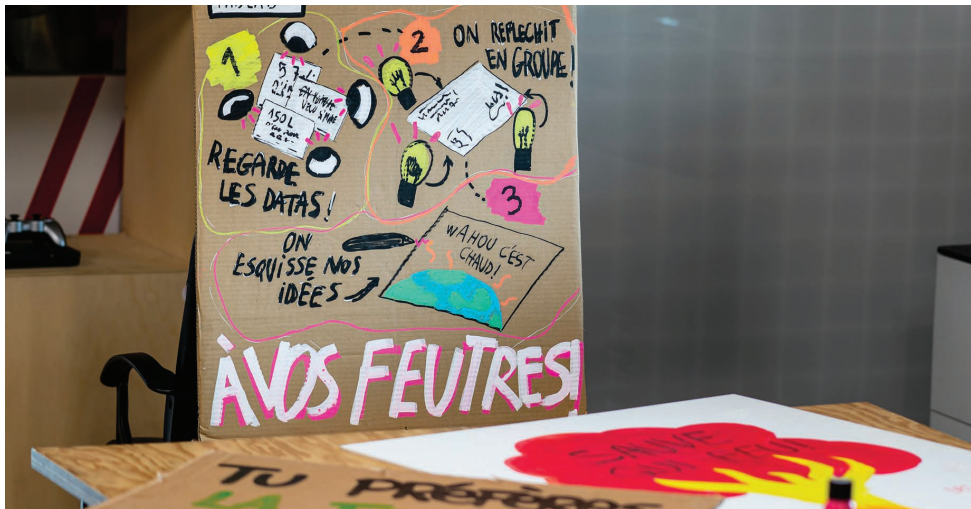 1
2
ON REFLECHIT
EN GROUPE!
150L
REGARDE
LES DATAS!
3
ON
ESQUISSE NOS
IDÉES
WAHOU C'EST
CHAUD!
À VOS FEUTRES!
SAUVE
TU PRÉFÈRES
LA